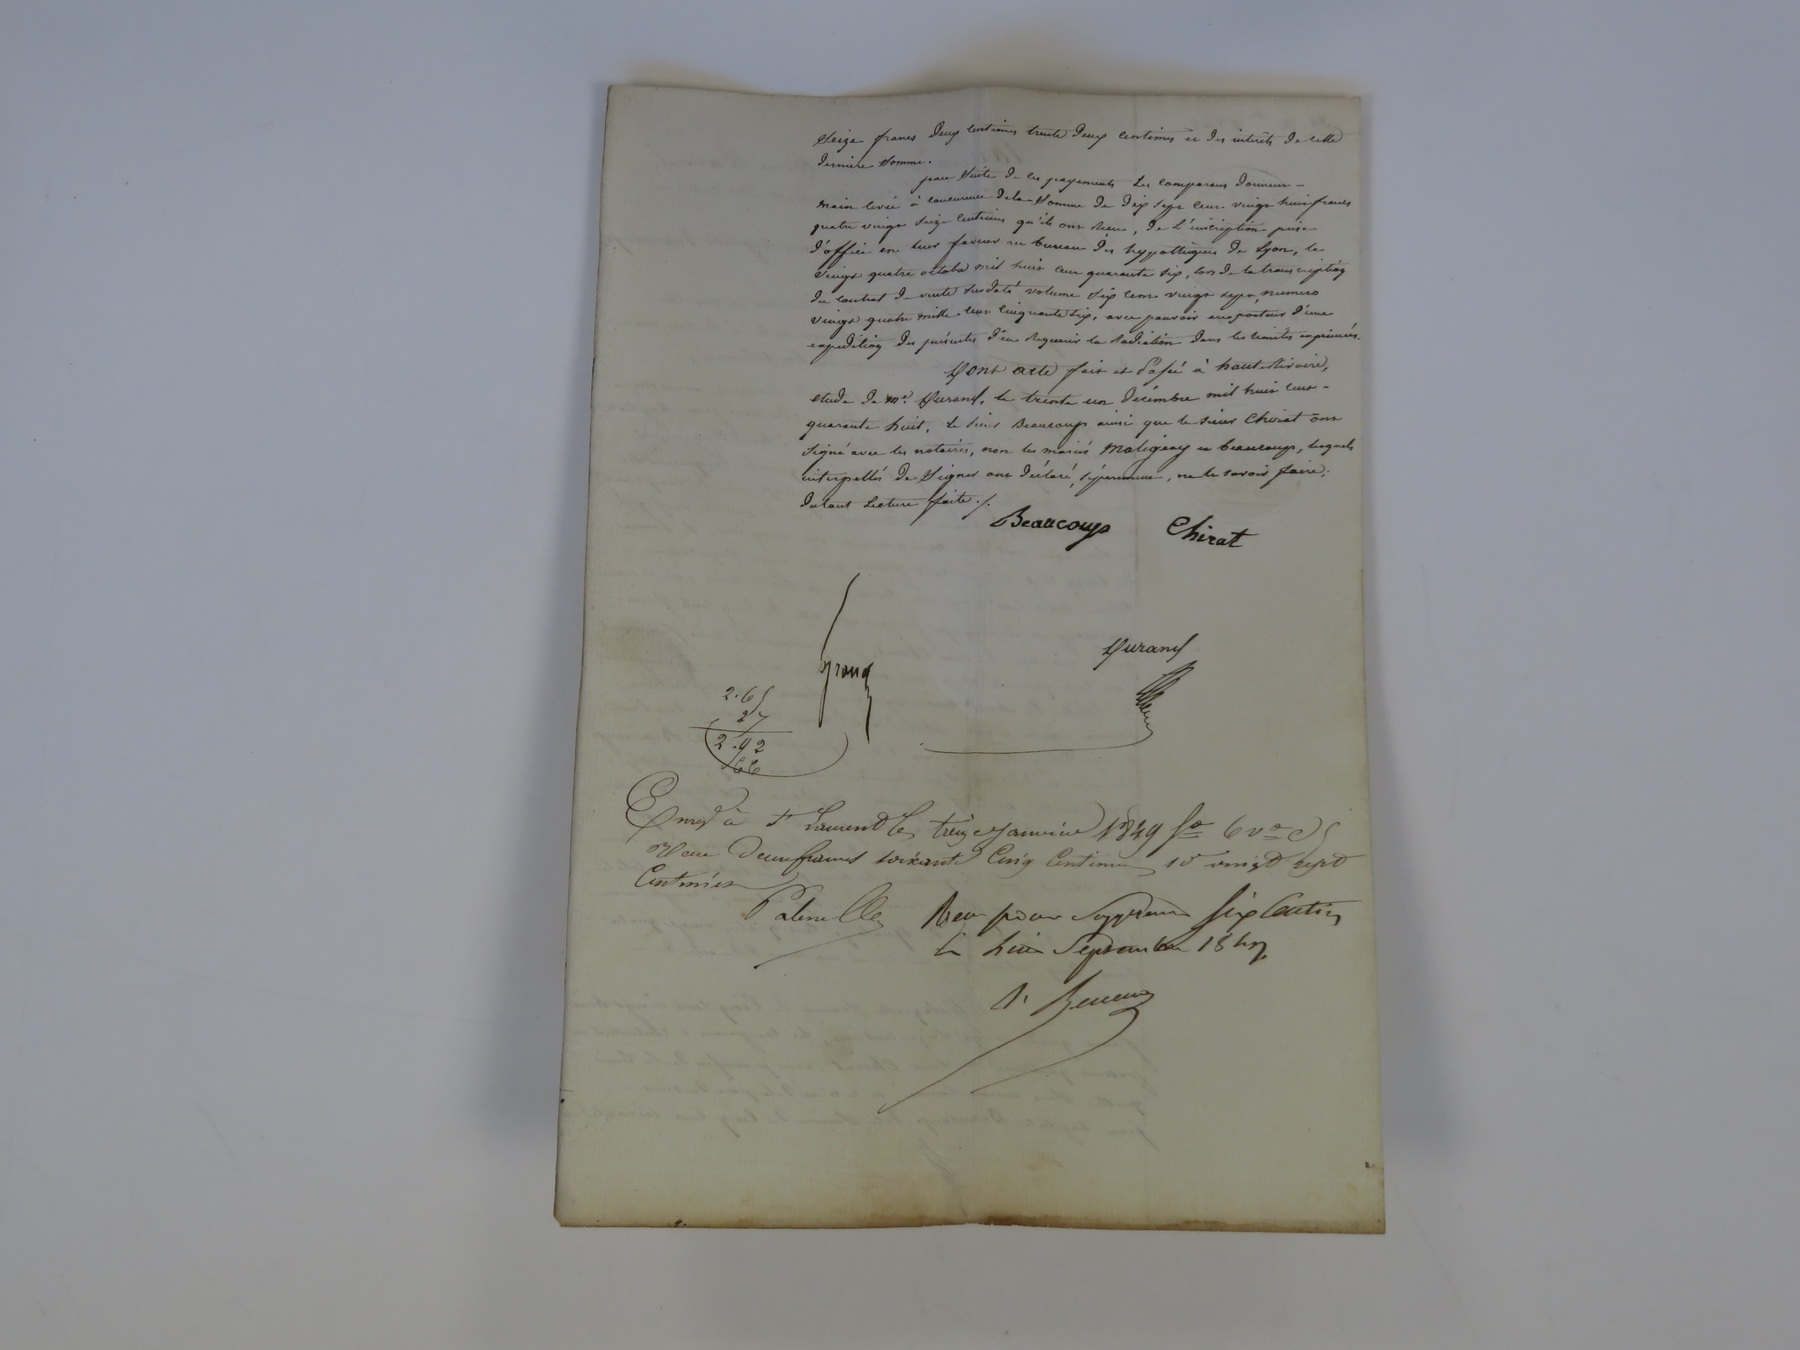 Seize francs deux centimes trente deux centimes et des intérêts de cette
dernière somme.
par suite de ces payements les comparans donnent
main levée à concurrence de la somme de dix sept cent vingt huit francs
quatre vingt seize centimes qu'ils ont reçue, de l'inscription prise
d'office en leur faveur au bureau des hypothèques de Lyon, le
vingt quatre octobre mil huit cent quarante six, lors de la transcription
du contrat de vente susdaté volume six cent vingt sept, numero
vingt quatre mille cent cinquante six, avec pouvoir au porteur d'une
expédition des présentes d'en requérir la radiation dans les limites exprimées.
Dont acte fait et passé à haut-Rivoire,
etude de me. Durand, le trente un décembre mil huit cent
quarante huit, le sieur Beaucoup ainsi que le sieur Chirat ont
signé avec les notaires, non les mariés Maligeay et beaucoup, lesquels
interpellés de signer ont déclaré, séparément, ne le savoir faire;
du tout lecture faite ./.
Beaucoup Chirat
grand Durand
2.65
27
2.92
66
Enreg à St Laurent le treize janvier 1849 fo 6 vo c 5
Reçu deux francs soixante cinq centimes 10e vingt sept
centimes
Reçu pour supplément six centimes
le huit septembre 1849